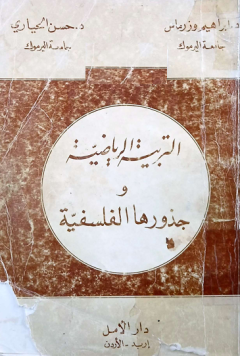 د. ابراهيم وزرماس
جامعة اليرموك
د. حسن الحياري
جامعة اليرموك
التربية الرياضية
و
جذورها الفلسفية
دار الأمل
إربد - الأردن